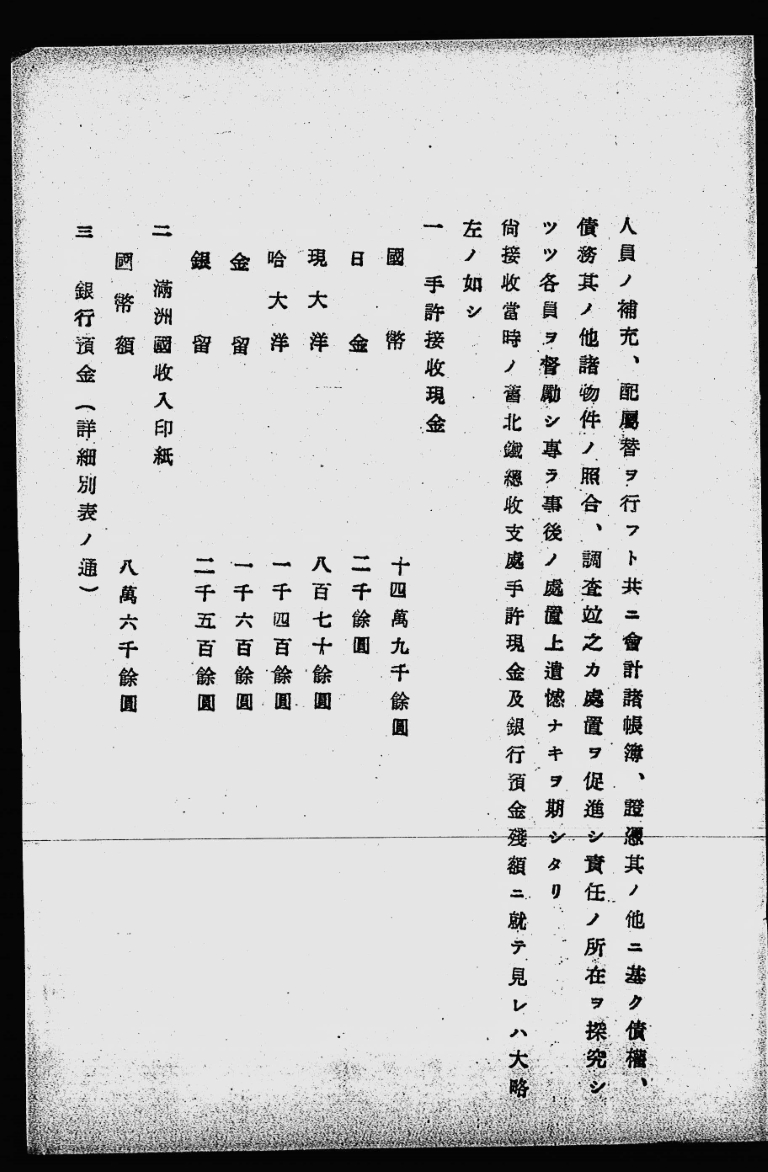 人員ノ補充、配屬替ヲ行フト共ニ會計諸帳簿、證憑其ノ他ニ基ク債權、
債務其ノ他諸物件ノ照合、調査竝之カ處置ヲ促進シ責任ノ所在ヲ探究シ
ツツ各員ヲ督勵シ專ラ事後ノ處置上遺憾ナキヲ期シタリ
尙接收當時ノ舊北鐵總收支處手許現金及銀行預金殘額ニ就テ見レハ大略
左ノ如シ
一 手許接收現金
國幣 十四萬九千餘圓
日金 二千餘圓
現大洋 八百七十餘圓
哈大洋 一千四百餘圓
金留 一千六百餘圓
銀留 二千五百餘圓
二 滿洲國收入印紙
國幣額 八萬六千餘圓
三 銀行預金(詳細別表ノ通)